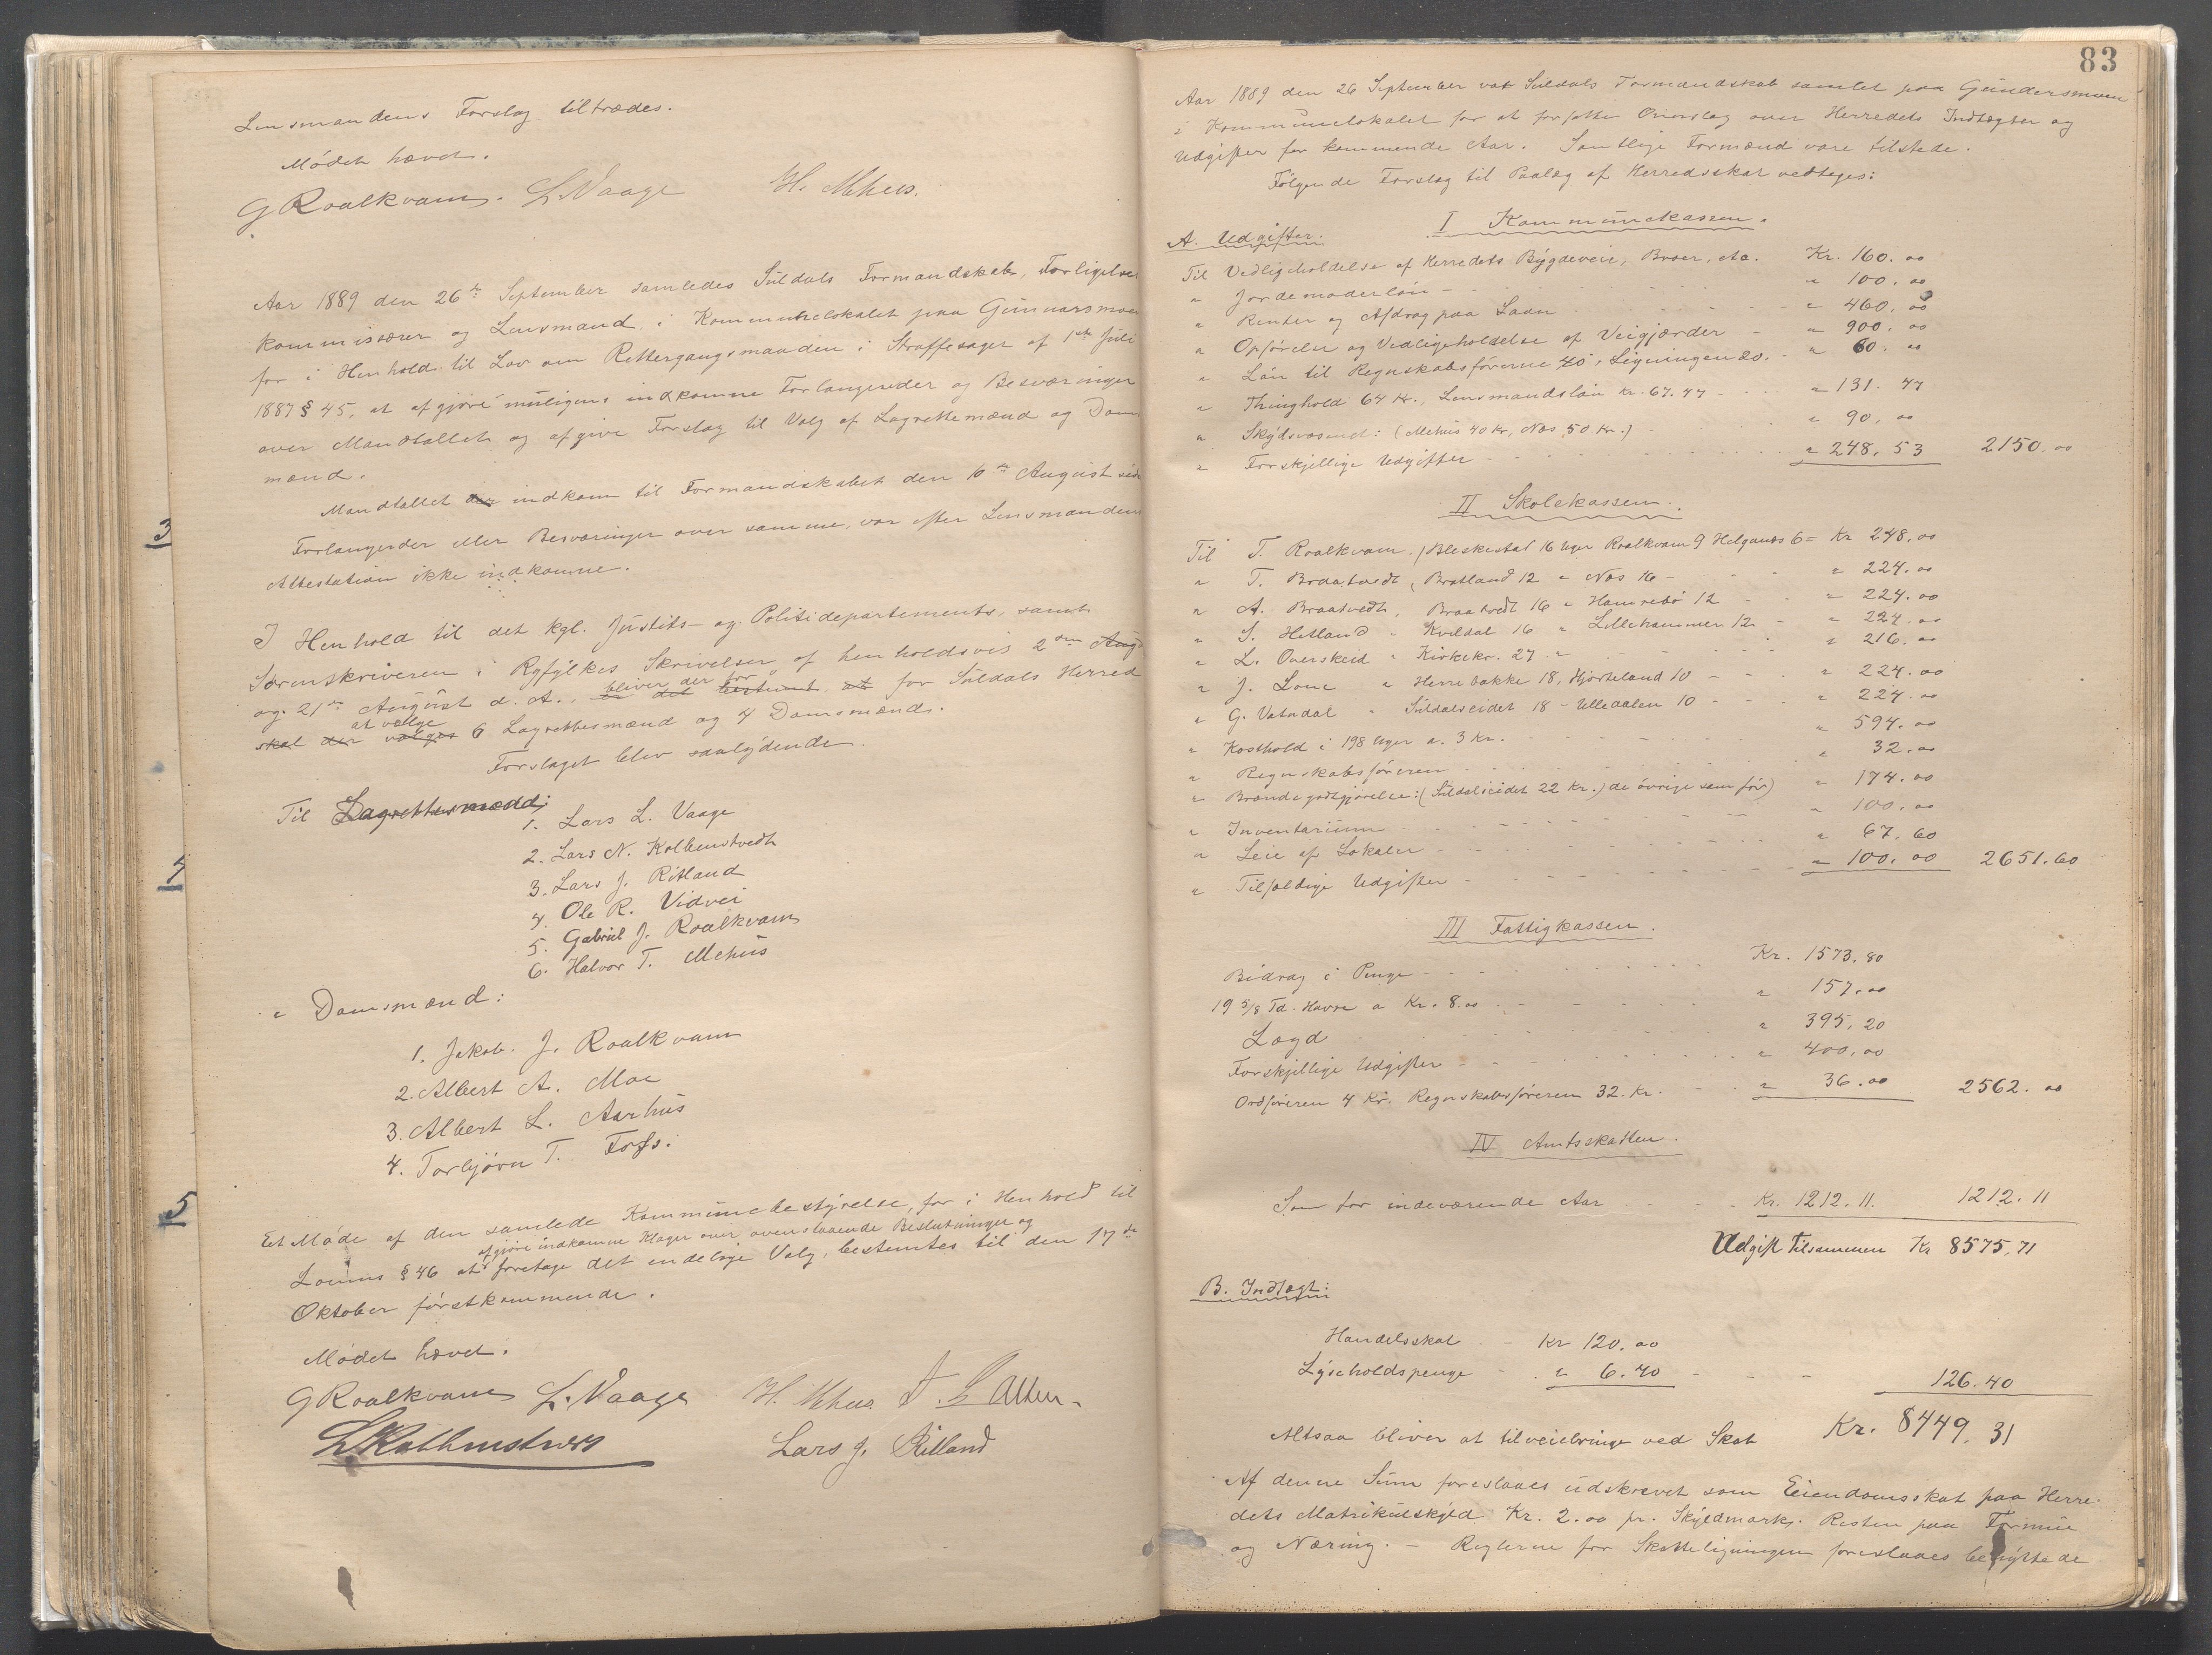 Lensmandens Forslag tiltrædes.
Mødet hævet.
G Roalkvam. L. Vaage H. Mehus.
Aar 1889 den 26de September samledes Suldals Formandskab, Forligelses
kommissærer og Lensmand i Kommunelokalet paa Gunnarsmoen
for i Henhold til Lov om Rettergangsmaaden i Straffesager af 1ste Juli
1887 § 45, at afgjøre muligens indkomne Forlangender og Besværinger
over Mandtallet og afgive Forslag til Valg af Lagrettemænd og Doms
mænd.
Mandtallet indkom til Formandskabet den 6te August
3
Forlangender eller Besværinger over samme, var efter Lensmandens
Attestation ikke indkomne.
I Henhold til det kgl. Justits- og Politidepartements, samt
Sorenskriveren i Ryfylkes Skrivelser af henholdsvis 2den Aug
og 21de August d. A., bliver der for det bestemt, at for Suldals Herred
at vælge
skal der vælges 6 Lagrettesmænd og 4 Domsmænd.
Forslaget blev saalydende.
Til Lagrettesmænd:
1. Lars L. Vaage
2. Lars N. Kolbenstvedt
4
3. Lars J. Ritland
4. Ole R. Vidvei
5. Gabriel J. Roalkvam
6. Halvor T. Mehus
" Domsmænd:
1. Jakob J. Roalkvam
2. Albert A. Moe
3. Albert L. Aarhus
4. Torbjørn T. Foss.
5
Et Møde af den samlede Kommunebestyrelse, for i Henhold til
afgjøre indkomne Klager over ovenstaaende Beslutninger og
Lovens § 46 at foretage det endelige Valg, bestemtes til den 17de
Oktober førstkommende.
Mødet hævet.
G Roalkvam L. Vaage H. Mehus.
L Kolbenstvedt Lars J. Ritland
83
Aar 1889 den 26 September var Suldals Formandskab samlet paa Gundersmoen
i Kommunelokalet for at forfatte Overslag over Herredets Indtægter og
Udgifter for kommende Aar. Samtlige Formænd vare tilstede.
Følgende Forslag til Paalæg af Herredsskat vedtoges:
I Kommunekassen.
A. Udgifter.
Til Vedligeholdelse af Herredets Bygdeveie, Broer, etc. Kr. 160.00
" Jordemoderløn - " 100.00
" Renter og Afdrag paa Laan " 460.00
" Opførelse og Vedligeholdelse af Veigjærder - " 900.00
" Løn til Regnskabsførerne 40, Ligningen 20. - " 60.00
" Thinghold 64 Kr., Lensmandsløn Kr. 67.47 - " 131.47
" Skydsvæsenet: (Mehus 40 Kr, Næs 50 Kr.) - " 90.00
" Forskjellige Udgifter - " 248.53 2150.00
II Skolekassen.
Til T. Roalkvam. (Bleskestad 16 Uger Roalkvam 9 Helganæs 6 = Kr 248.00
" T. Braatvedt, Bratland 12 " Næs 16 - " 224.00
" A. Braatvedt, Braatvedt 16 " Hamrebø 12 " 224.00
" S. Hetland " Kvildal 16 " Lillehammer 12 - " 224.00
" L. Overskeid " Kirkekr. 27 " 216.00
" J. Lone " Herrebakke 18, Hjorteland 10 - " 224.00
" G. Vatndal " Suldalseidet 18 - Ulledalen 10 - " 224.00
" Kosthold i 198 Uger a. 3 Kr. " 594.00
" Regnskabsføreren " 32.00
" Brændegodtgjørelse: (Suldalseidet 22 Kr.) de øvrige som før) " 174.00
" Inventarium " 100.00
" Leie af Lokaler " 67.60
" Tilfældige Udgifter " 100.00 2651.60
III Fattigkassen.
Bidrag i Penge Kr. 1573.80
19 5/8 Td. Havre a Kr. 8.00 " 157.00
Lægd " 395.20
Forskjellige Udgifter " 400.00
Ordføreren 4 Kr. Regnskabsføreren 32. Kr. " 36.00 2562.00
IV Amtsskatten.
Som for indeværende Aar Kr. 1212.11. 1212.11
Udgift tilsammen Kr 8575.71
B. Indtægt:
Handelsskat - Kr 120.00
Lyseholdspenge - " 6.40 126.40
Altsaa bliver at tilveiebringe ved Skat Kr. 8449.31
Af denne Sum foreslaaes udskrevet som Eiendomsskat paa Herre-
dets Matrikulskyld Kr. 2.00 pr. Skyldmark. Resten paa Formue
og Næring. - Reglerne for Skatteligningen foreslaaes benyttede